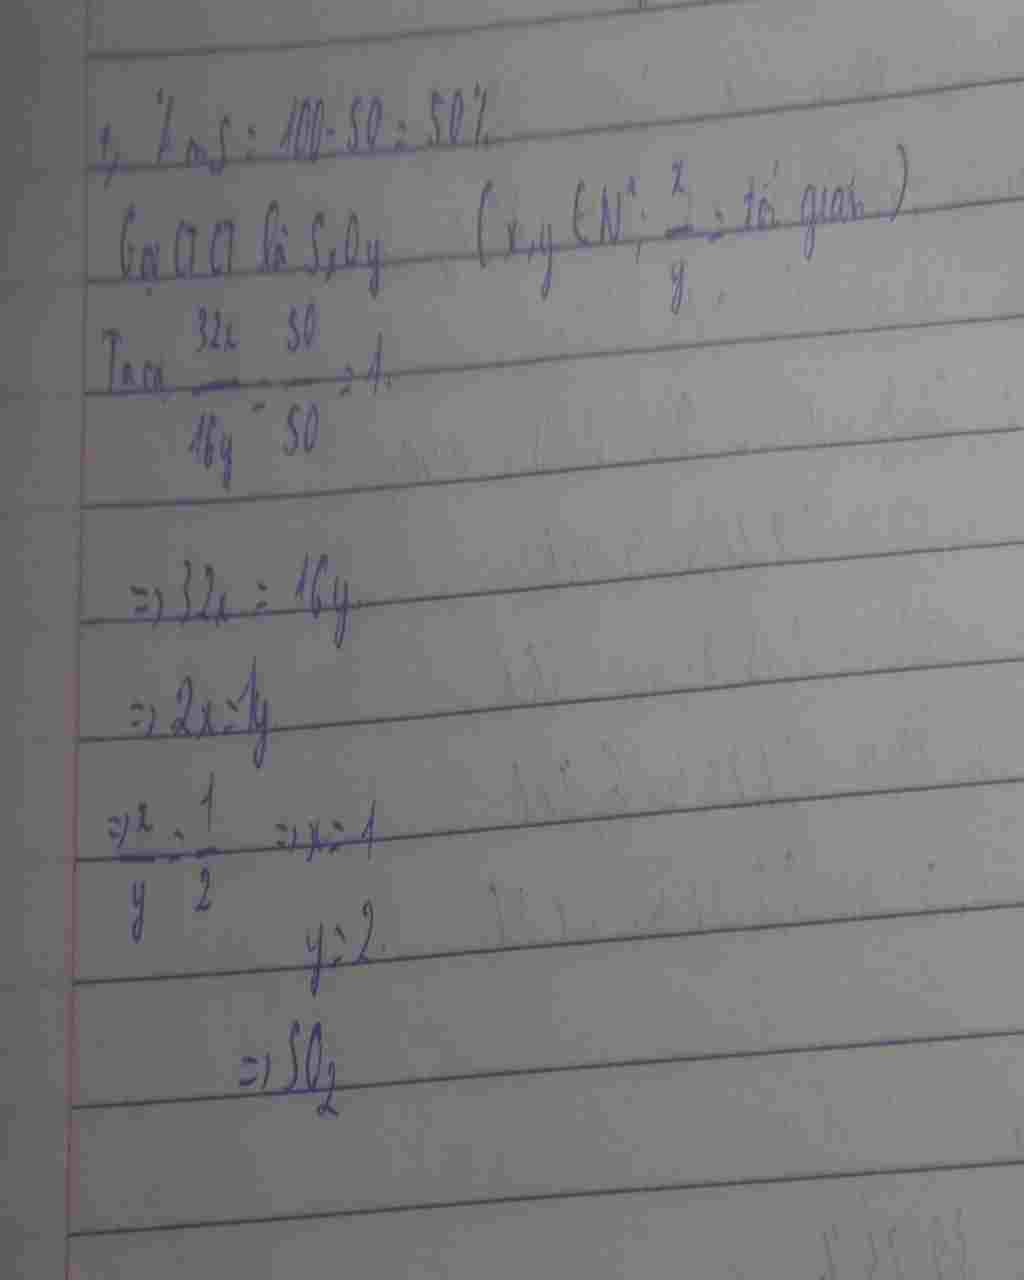 1, % mS = 100 - 50 = 50%
Gọi CTC là SxOy (x,y ∈ N*; x/y = tối giản)
Ta có 32x/16y = 50/50 = 1.
=> 32x = 16y
=> 2x = 1y
=> x/y = 1/2 => x = 1
y = 2.
=> SO2